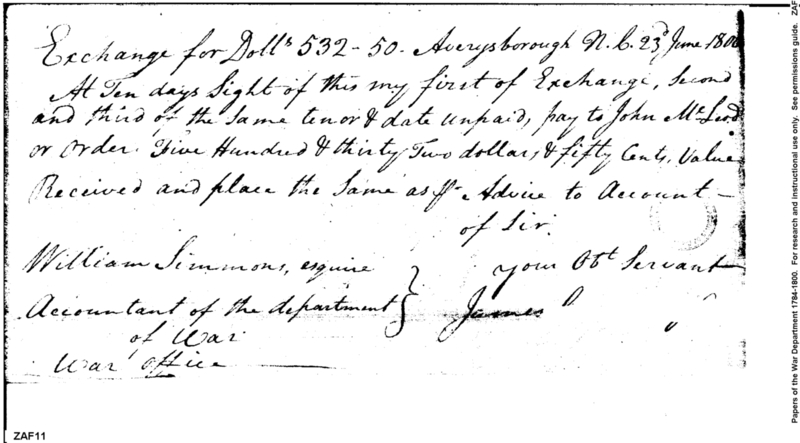 Exchange for Dolls 532-50. Averysborough N. C. 23d June 1800
At Ten days Sight of this my first of Exchange, Second
and third of the Same tenor & date unpaid, pay to John McLeod
or order. Five Hundred & thirty Two dollars, & fifty Cents, Value
Received and place the Same as Pr Advice to Account -
of Sir.
your Obt Servant
James
William Simmons, esquire
Accountant of the department
of War
War office
ZAF11
Papers of the War Department 1784-1800. For research and instructional use only. See permissions guide. ZAF